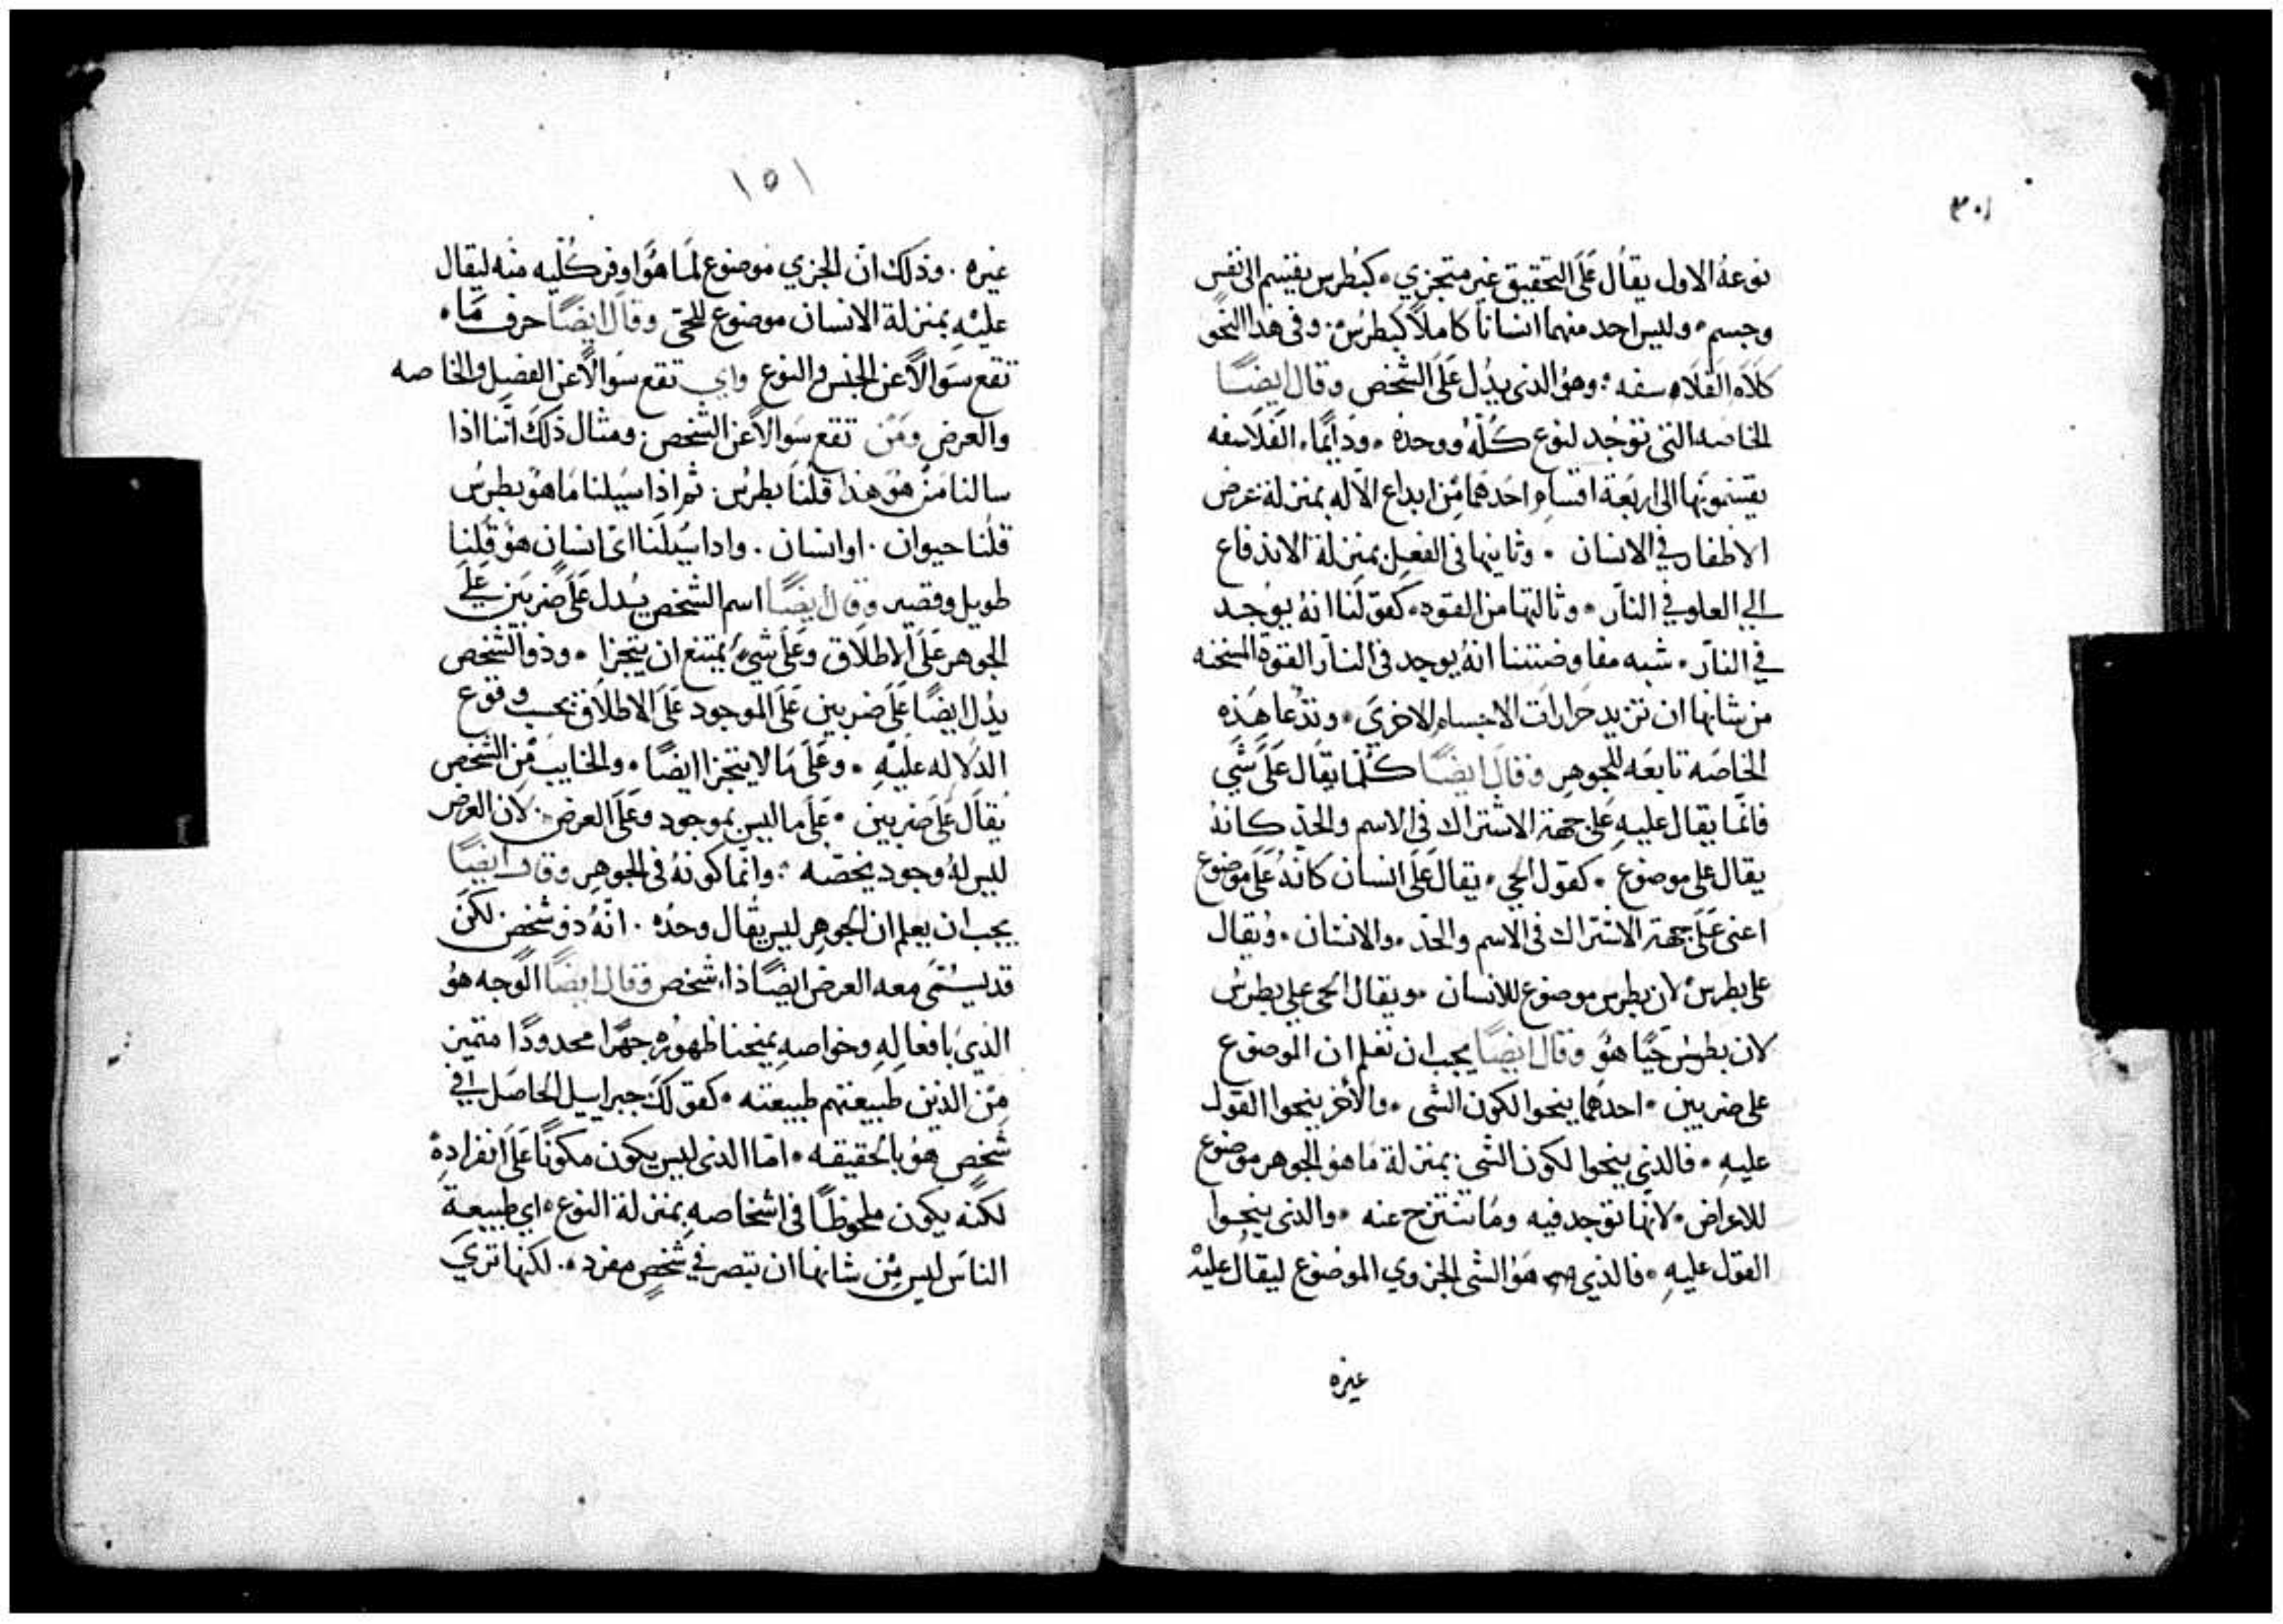 ٣٠١
نوعهُ الاول يقال عَلَى التحقيق غير متجزي. كبُطرس يقتسم الى نفس
وجسم. وليس احد منهما انسانًا كاملاً كبطرس. وفى هذا النحو
كلام الفلاسفه. وهو الذى يدُل عَلَى الشخص وقال ايضًا
الخاصه التى توجُد لنوع كُلّهُ ووحدهُ. ودَايمًا. الفلاسفه
يقسمونها الى اربَعَة اقسام احدهما مِن ابداع الاله بمنزلة عرض
الاظفار في الانسان. وثانيها فى الفعل بمنزلة الاندفاع
الي العلو في النار. وثالثها من القوه. كقولنا انهُ يوُجد
في النار. شبه مفاوضتنا انهُ يوجد فى النار القوة المسخنه
من شانها ان تزيد حَرارات الاجسام الاخرَي. وتدُعا هَذِه
الخاصَه تابعَه للجوهر وقال ايضًا كُلما يقال عَلَى شَي
فانما يقال عليهِ عَلى جهة الاشتراك فى الاسم والحد كانهُ
يقال على موضوع. كقول الحي. يقال عَلَى انسان كانهُ عَلَى موضوع
اعنى عَلَى جهة الاشتراك فى الاسم والحد. والانسان. ويُقال
على بطرس لان بطرس موضوع للانسان. ويقال الحى على بطرس
لان بطرس حَيًا هُوَ وقال ايضًا يجب ان نعلم ان الموضوع
على ضربين. احدَهما ينحوا لكون الشى. والاخر ينحوا القول
عليهِ. فالذي ينحوا لكون الشى بمنزلة مَا هوَ الجوهر موضوع
للاعراض. لانها توجد فيه ومَا تنتزح عنه. والذى ينحوا
القول عليهِ. فالذي هوَ الشى الجزوي الموضوع ليقال عليْهِ
غيره
١٥١
غيره. وذلك انّ الجزي موضوع لمَا هوَ اوفر كُليه منه ليقال
عليْهِ بمنزلة الانسان موضوع للحيّ وقال ايضًا حرف مَا.
تقع سَوالاً عن الجنس والنوع واي تقع سَوالاً عن الفصل والخاصه
والعرض ومَن تقع سَوالاً عن الشخص. ومثال ذلك اننا اذا
سالنا مَن هوَ هذا قلنا بطرس. ثم اذا سَيلنا مَا هوَ بطرس
قلنا حيوان. او انسان. وادا سُيلنا ايّ انسان هوَ قُلنا
طويل وقصير وقال ايضًا اسم الشخص يُدل عَلَى ضربَين عَلَى
الجوهر عَلَى الاطلاق وعَلَى شيٍ يمتنع ان يتجزا. وذو الشخص
يدُل ايضًا عَلَى ضربين عَلَى الموجود عَلَى الاطلاق بحسب وقوع
الدَلاله عليْهِ. وعَلَى مَا لا يتجزا ايضًا. والخايب مِن الشخص
يُقال عَلَى ضربين. عَلَى ما ليس بموجود وعَلَى العرض. لان العرض
ليس لهُ وجود يخصّه. وانما كونهُ فى الجوهر وقال ايضًا
يجب ان يعلم ان الجوهر ليس يُقال وحدُه. انّهُ ذو شخص لكن
قد يسُمَى معه العرض ايضًا ذا شخص وقال ايضًا الوجه هوُ
الذيَ بافعالهِ وخواصهِ يمنحنا ظهورُه جهرًا محدودًا متميز
مِن الذين طبيعتهم طبيعته. كقولك جبراييل الحاصَل في
شخص هوُ بالحقيقه. امّا الذى ليس يكون مكونًا عَلَى انفرادِهِ
لكنّه يكون ملحوظًا فى اشخاصهِ بمنزلة النوع. اي طبيعة
الناس ليس مِن شانها ان تبصر في شخص مفرد. لكنها تريَ